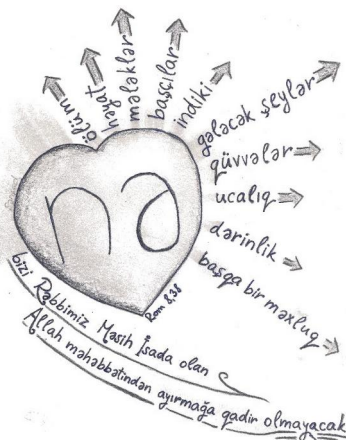 nə
ölüm
həyat
mələklər
başçılar
indiki
gələcək şeylər
qüvvələr
ucalıq
dərinlik
başqa bir məxluq
Rom 8,38
bizi Rəbbimiz Məsih İsada olan
Allah məhəbbətindən ayırmağa qadir olmayacaq